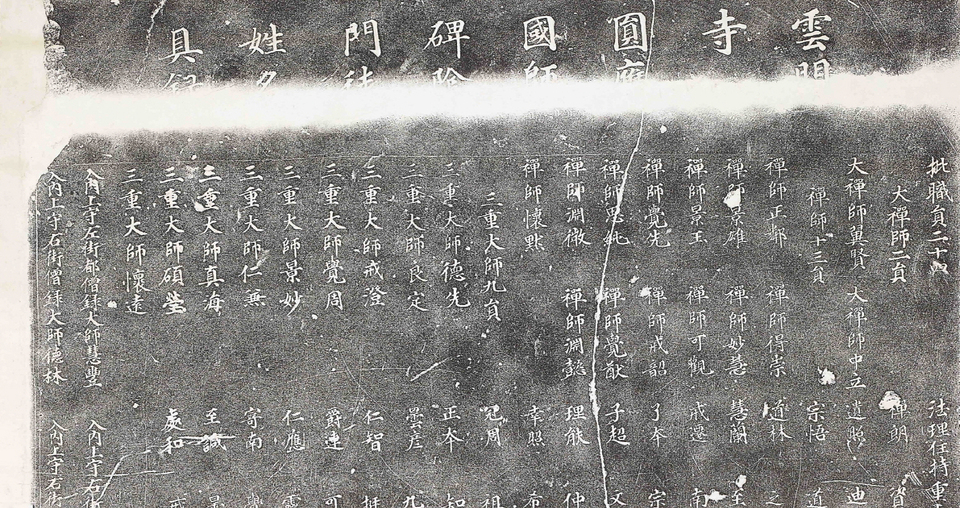 雲門
寺
圓應
國師
碑陰
門徒
姓名
具録
批職員二十四
法理住持重
大禪師二員
禪朗
大禪師翼賢 大禪師中立
遁照 迪
禪師十三員
宗悟 道
禪師正鄰 禪師得崇
道林 之
禪師景雄 禪師妙慧
慧蘭 至
禪師景玉 禪師可觀
戒遷 南
禪師覺先 禪師戒韶
了夲 宗
禪師思純 禪師覺猷
子超 文
禪師淵微 禪師淵懿
理能 仲
禪師懷默
幸照 希
三重大師九員
冠周 祖
三重大師德先
正夲 知
三重大師良定
曇彦
三重大師戒澄
仁智 挺
三重大師覺周
爵連 可
三重大師景妙
仁應
三重大師仁無
寄南
三重大師真海
至誠
三重大師碩瑩
處和 戒
三重大師懷遠
入內上守左街都僧録大師慧豐
入內上守左街
入內上守右街僧録大師德林
入內上守右街